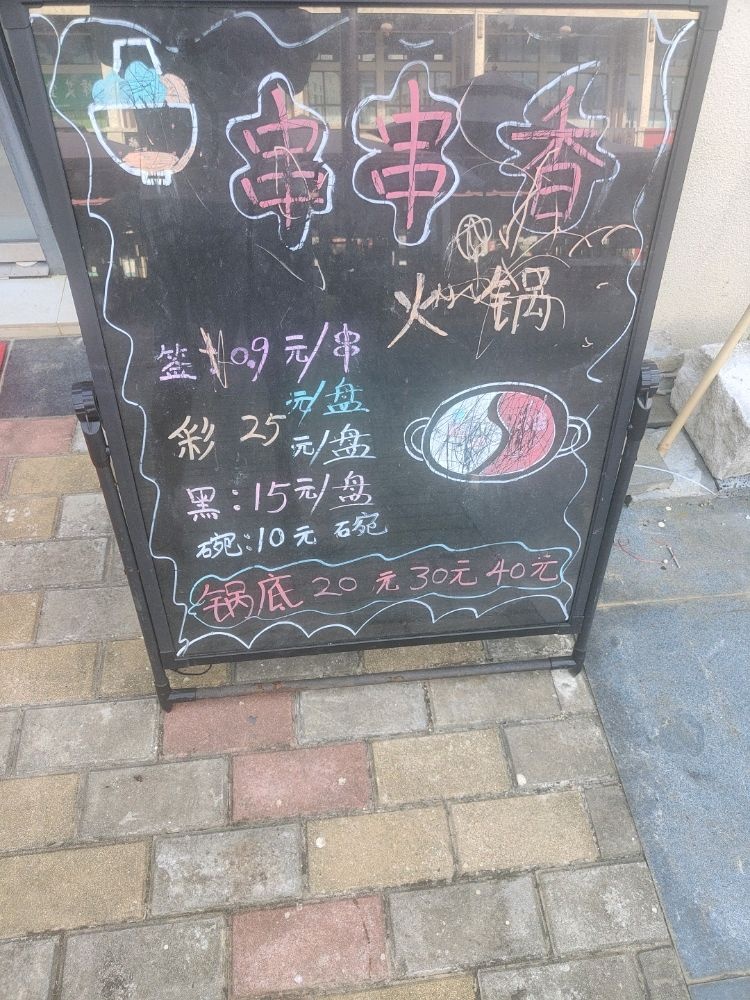 串串香
火锅
签: 0.9 元/串
元/盘
彩 25 元/盘
黑: 15元/盘
碗: 10 元 碗
锅底 20 元 30元 40元